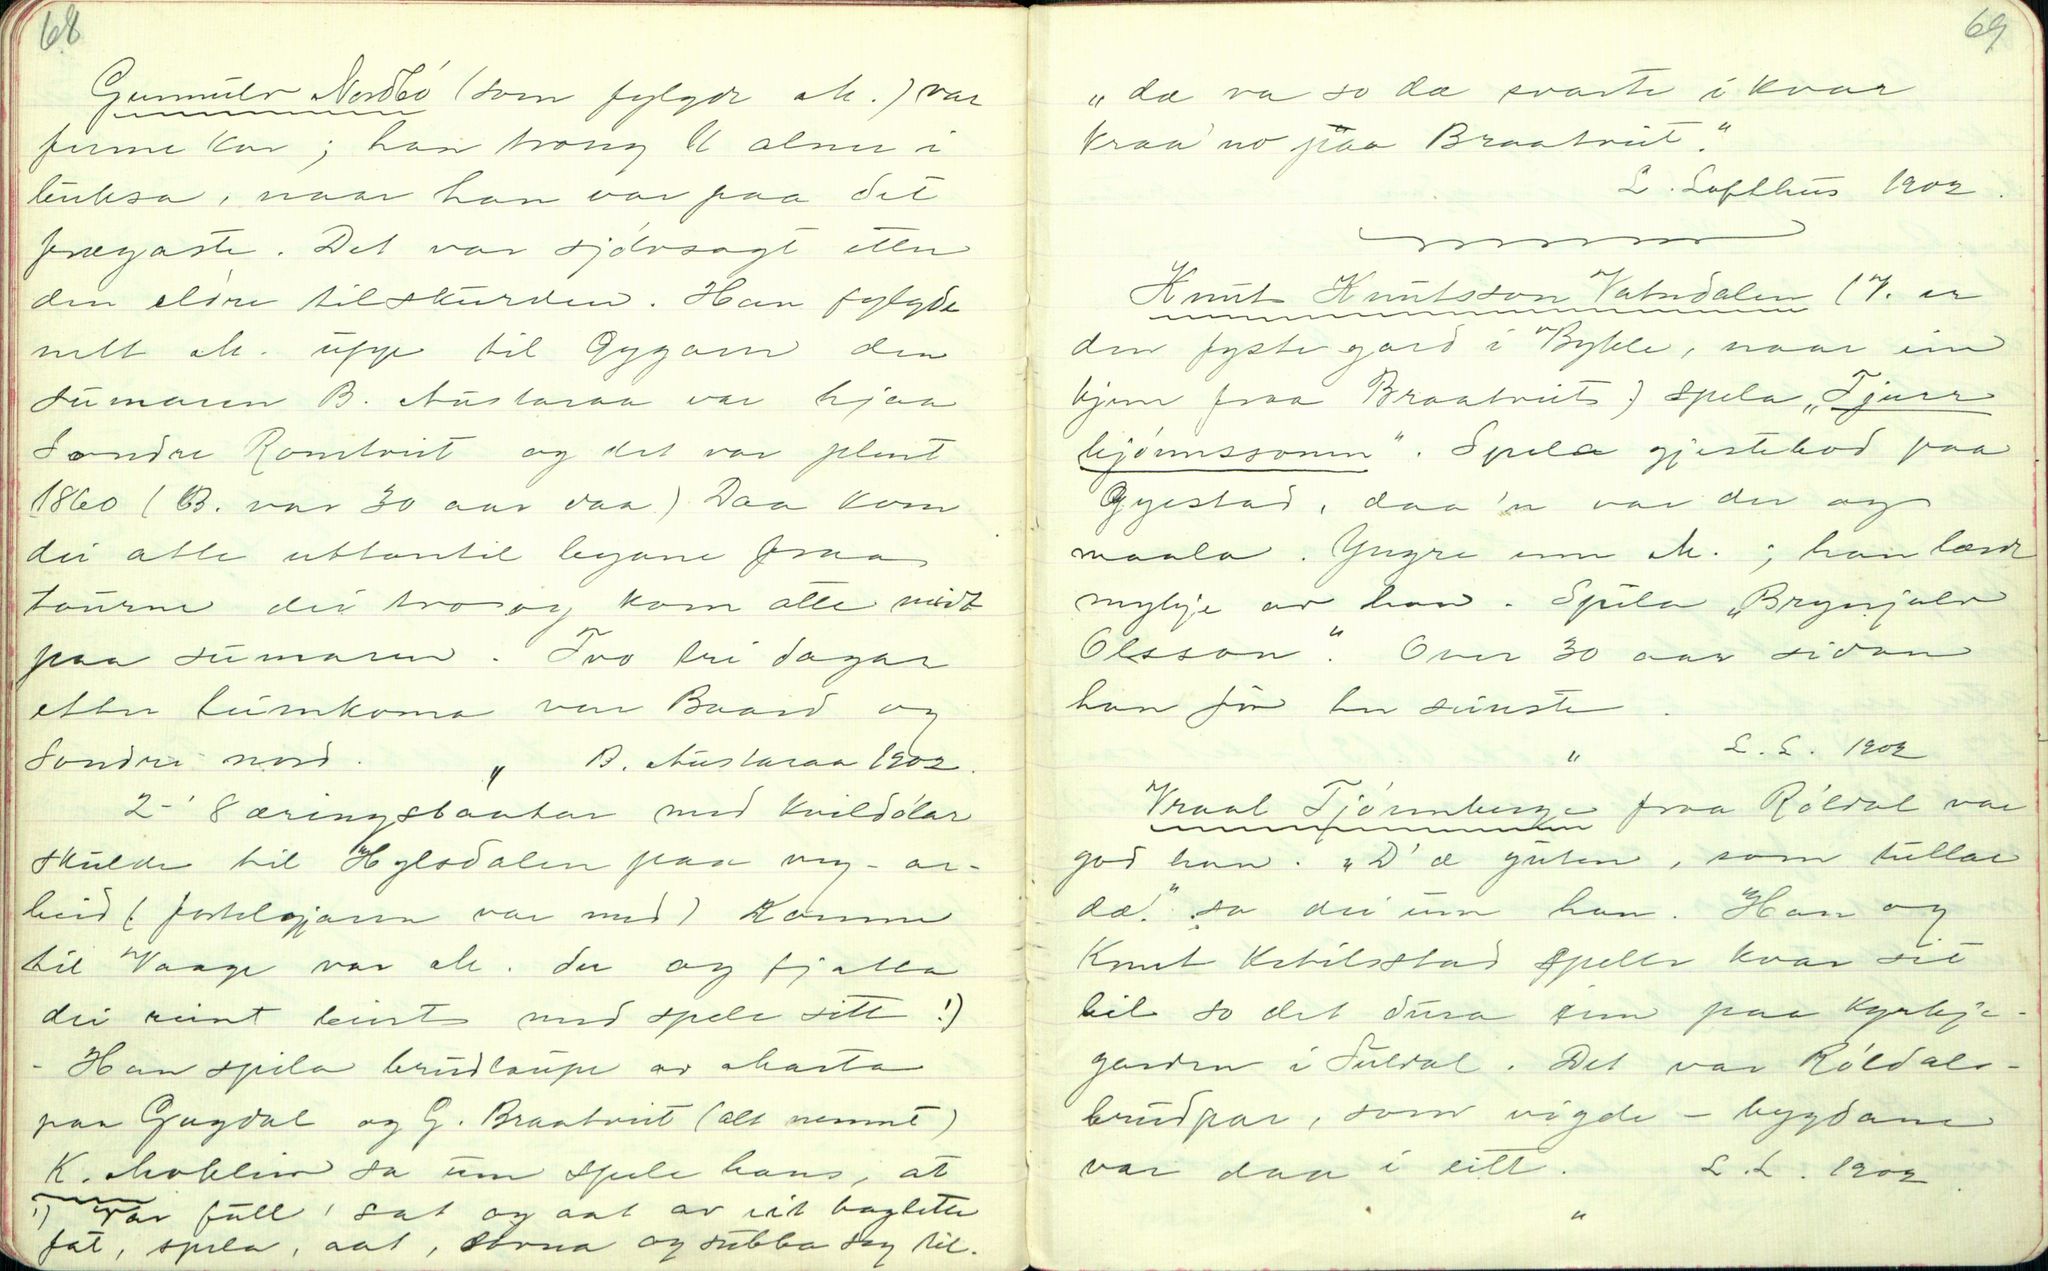 68
Gunnulv Nordbö (som fylgde M.) var
finne kar; han trong 11 alner i
buksa, naar han var paa det
frægaste. Det var sjölvsagt etter
den eldre tilskurden. Han fylgde
nett M. uppe til Gygarn den
sumaren B. Austaraa var hjaa
Sondre Romtveit og det var plent
1860 (B. var 30 aar daa) Daa kom
dei atte uttantil byane fraa
tourne dei tvo og kom atte midt
paa sumaren. Tvo tri dagar
etter heimkoma var Baard og
Sondre nord. " B. Austaraa 1902.
2-' 8 æringsbaatar med kvildölar
skulde til Hylsdalen paa veg-ar-
beid (fortelgjaren var med) Komne
til Vaage var M. der og fjatla
dei reint beint med spele sitt !)
- Han spela brudlaupe av Marta
paa Gugdal og G. Braatveit (alt nemnt)
K. Moklein sa um spele hans, at
!) Var full, sat og aat av eit baglette
fat, spela, aat, sovna og subba seg til.
69
„dæ va so dæ svarte i kvar
kraa no paa Braatveit."
L. Lofthus 1902.
Knut Knutsson Vatndalen (V. er
den fyste gard i Bykle, naar ein
kjem fraa Braatveit) spela „Tjurr
bjönnssonen". Spela gjestebod paa
Gyestad, daa'n var der og
maala. Yngre enn M.; han lærde
mykje av han. Spela „Brynjulv
Olsson". Over 30 aar sidan
han for her seinste.
" L. L. 1902
Vraal Tjörnnberge fraa Röldal var
god han. „D'æ guten, som tullar
dæ!" sa dei um han. Han og
Knut Ketilsstad spelte kvar sit
bil so det dura sum paa kyrkje-
garden i Suldal. Det var Röldals-
brudpar, som vigde - bygdane
var daa i eitt. L. L. 1902.
"